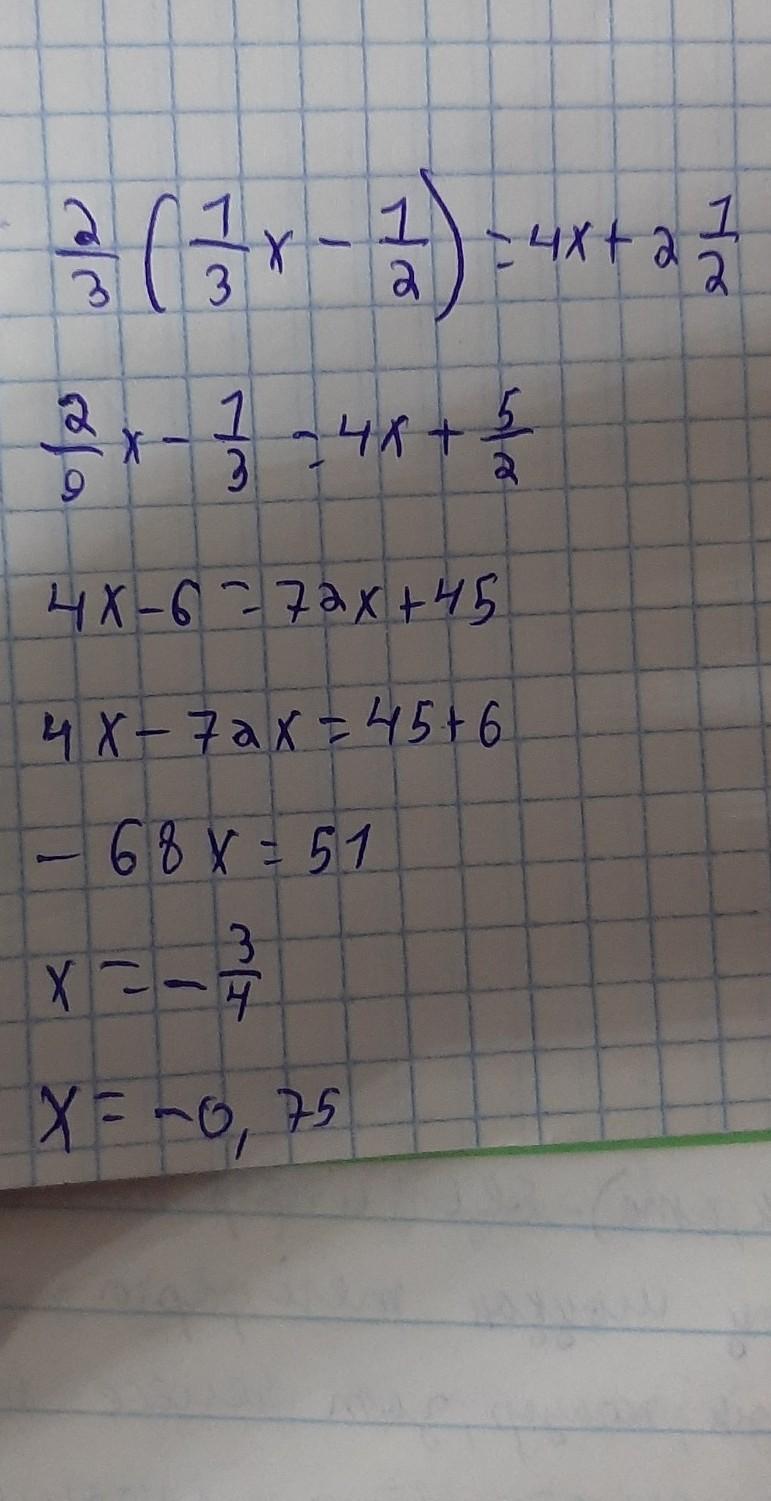 2/3 (1/3 x - 1/2) = 4x + 2 1/2
2/9 x - 1/3 = 4x + 5/2
4x - 6 = 72x + 45
4x - 72x = 45 + 6
- 68x = 51
x = - 3/4
x = -0,75